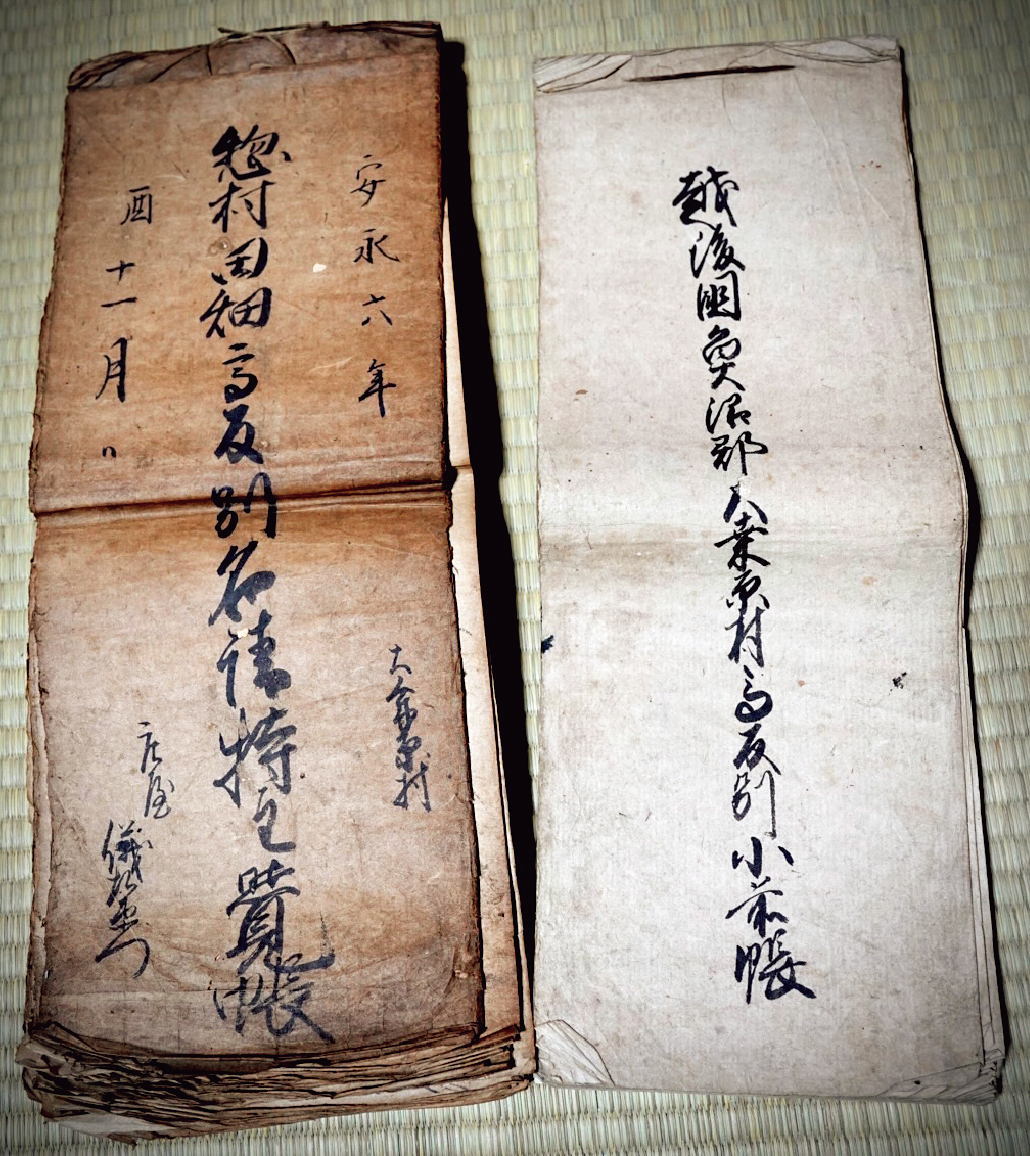 越後國魚沼郡大桑原村高反別小前帳
安永六年
大桑原村
惣村田畑高反別名請持主覺帳
酉十一月日
庄屋